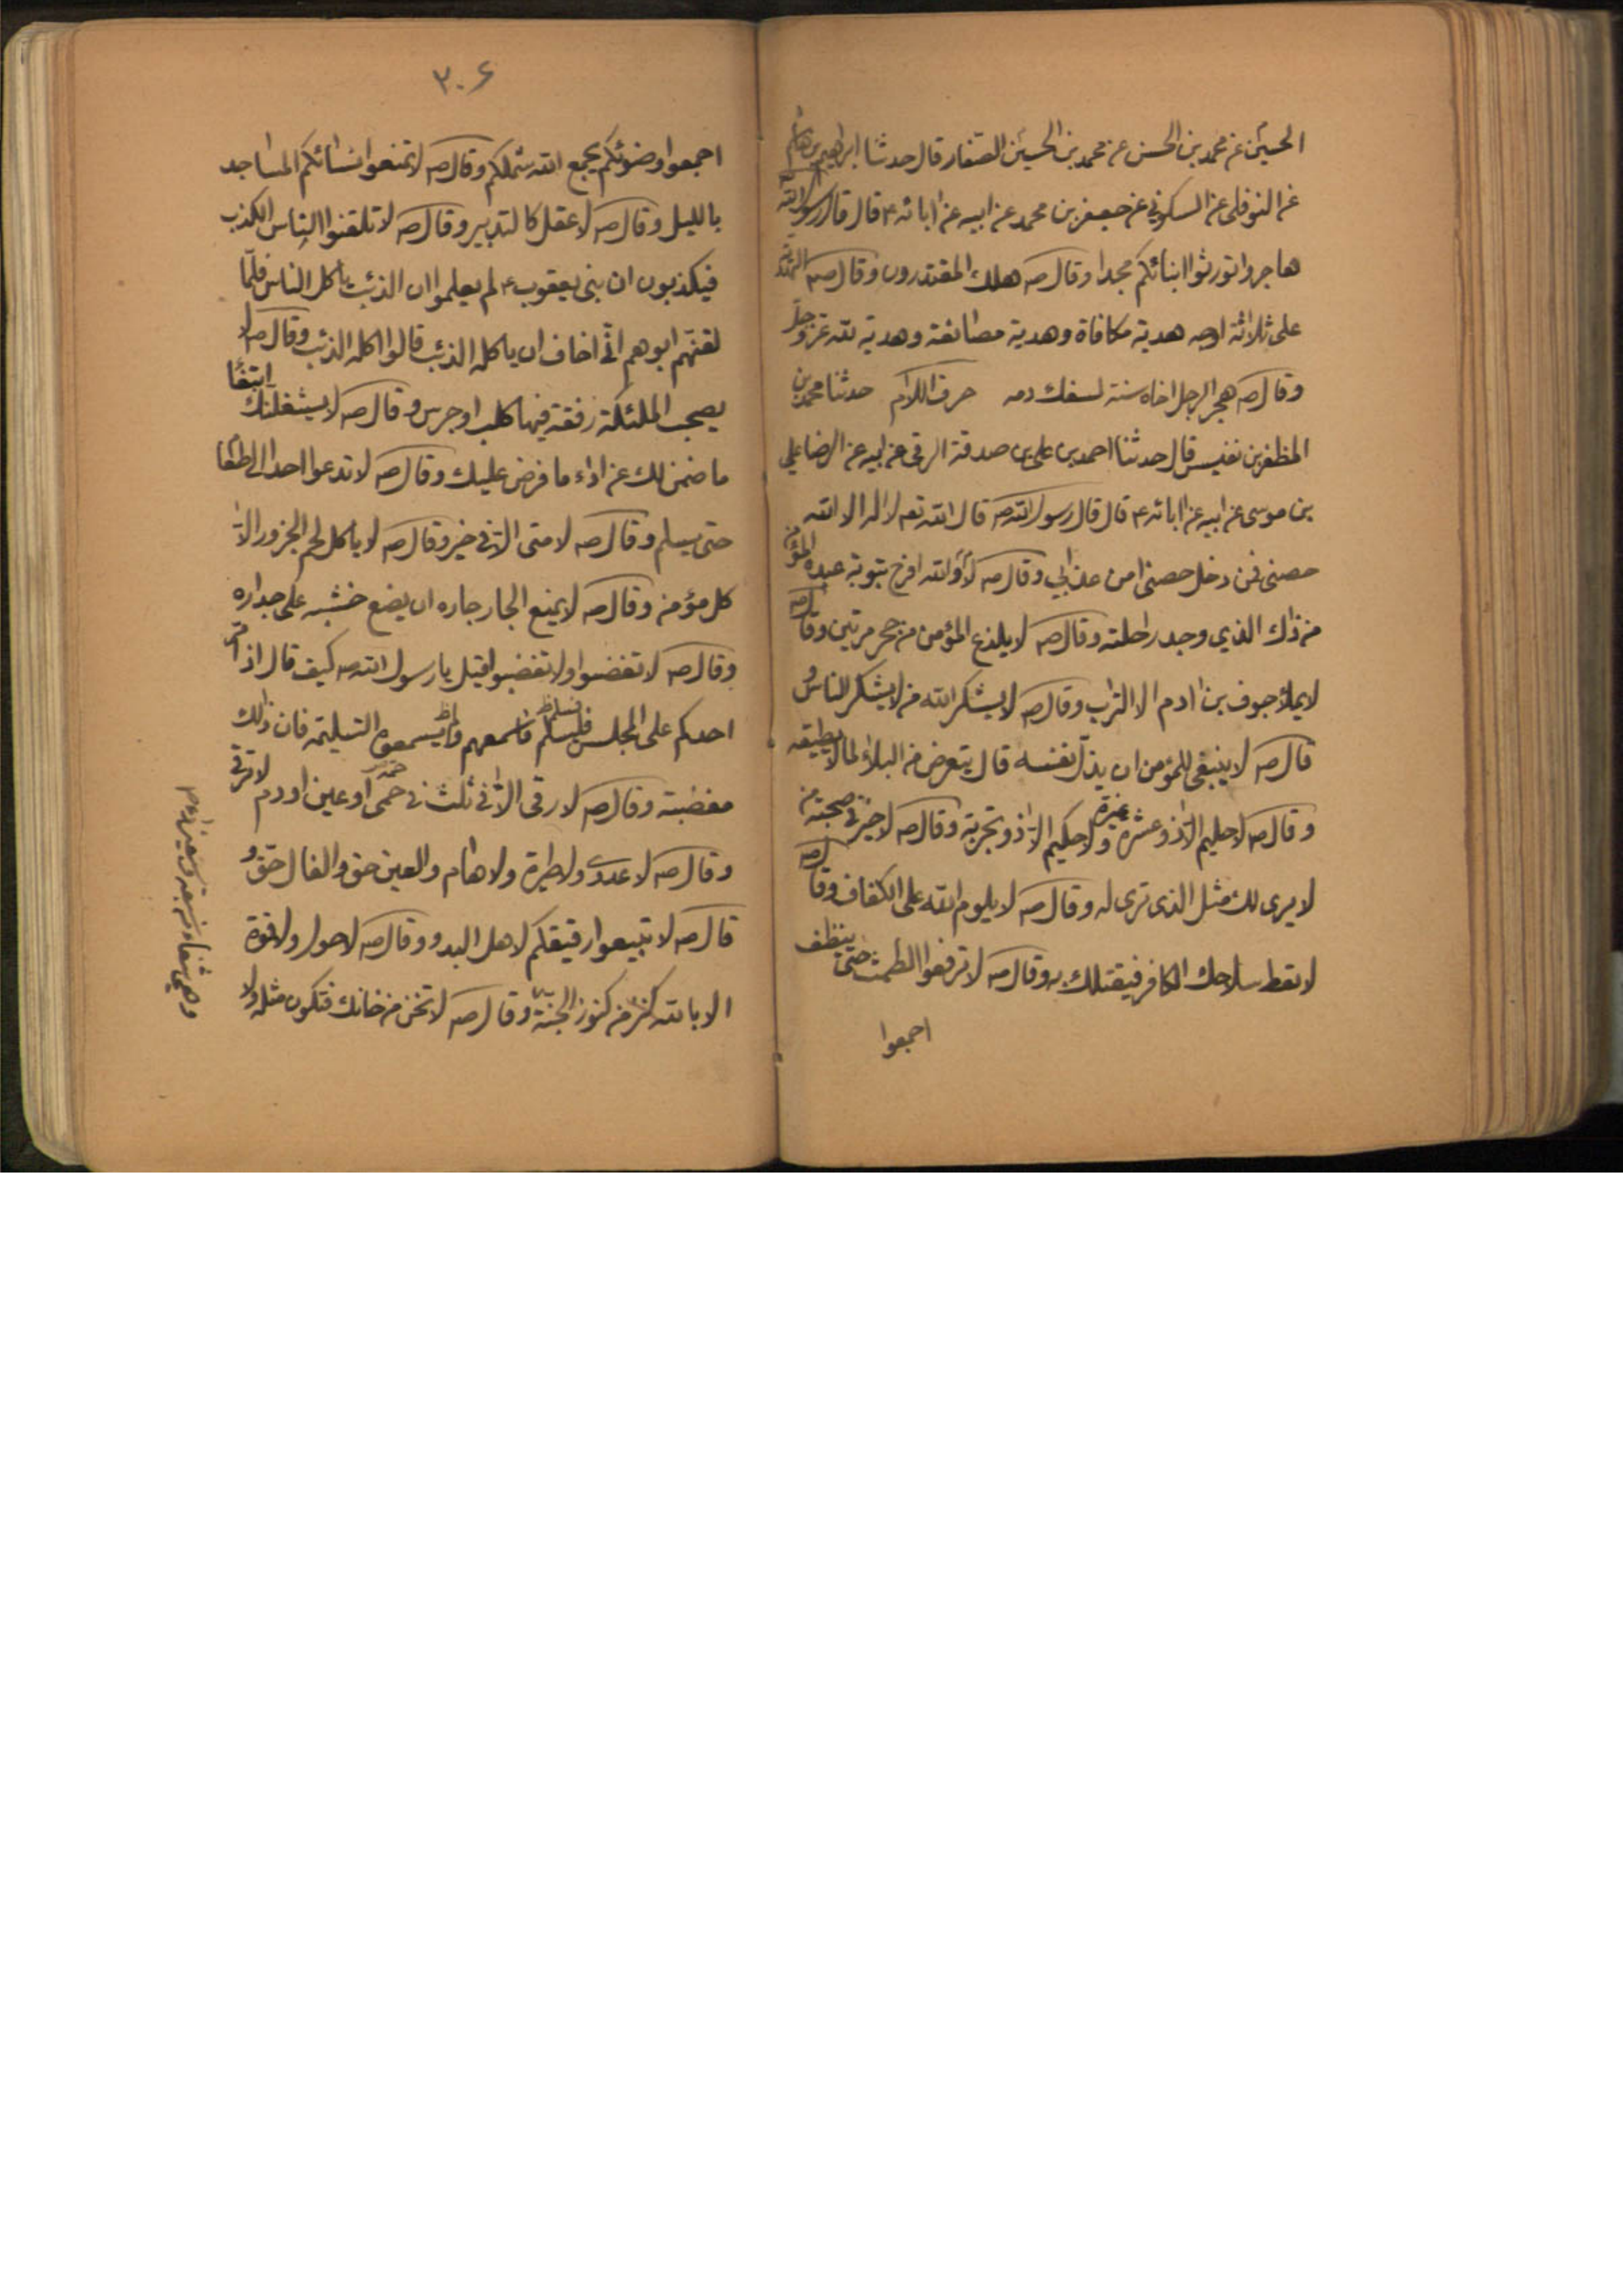 الحسين عن محمد بن الحسن عن محمد بن الحسين الصفار قال حدثنا ابراهيم بن هاشم
عن النوفلى عن السكونى عن جعفر بن محمد عن ابيه عن ابائه ع قال قال رسول الله
هاجروا تورثوا ابنائكم مجدا وقال صه هلك المقتدرون وقال صه الهدية
على ثلاثة اوجه هدية مكافاة وهدية مصانعة وهدية لله عز وجل
وقال صه هجر الرجل اخاه سنة لسفك دمه حرف اللام حدثنا محمد بن
المظفر بن نفيس قال حدثنا احمد بن على بن صدقة الرقى عن ابيه عن الرضا علي
بن موسى عن ابيه عن ابائه ع قال قال رسول الله صه قال الله تعه لا اله الا الله
حصنى فمن دخل حصنى امن عذابي وقال صه لله افرح بتوبة عبده المؤمن
من ذاك الذي وجد راحلته وقال صه لا يلذع المؤمن من جحر مرتين وقال صه
لا يملأ جوف بن ادم الا التراب وقال صه لا يشكر الله من لا يشكر الناس و
قال صه لا ينبغى للمؤمن ان يذل نفسه قال يتعرض من البلاء لما لا يطيقه
وقال صه لا حليم الا ذو عشرة ولا حكيم الا ذو تجربة وقال صه لا خير فى صحبة من
لا يرى لك مثل الذى ترى له وقال صه لا يلوم الله على الكفاف وقال صه
لا تعط سلاحك الكافر فيقتلك به وقال صه لا ترفعوا الطست حتى ينظف
اجمعوا
٣٠۶
اجمعوا وضوئكم يجمع الله شملكم وقال صه لا تمنعوا نسائكم المساجد
بالليل وقال صه لا عقل كالتدبير وقال صه لا تلقنوا الناس الكذب
فيكذبون ان بنى يعقوب ع لم يعلموا ان الذئب ياكل الناس فلما
لقنهم ابوهم انى اخاف ان ياكله الذئب قالوا اكله الذئب وقال صه لا
يصحب الملئكة رفقة فيها كلب او جرس وقال صه لا يشغلنك ابتغا
ما ضمن لك عن اداء ما فرض عليك وقال صه لا تدعوا احدا الى الطعا
حتى يسلم وقال صه لا متى الا فى خير وقال صه لا ياكل لحم الجزور الا
كل مؤمن وقال صه لا يمنع الجار جاره ان يضع خشبه على جداره
وقال صه لا تغضبوا ولا تغضبوا قيل يا رسول الله صه كيف قال اذا مر
احدكم على المجلس فليسلم تسليما فاسمعهم وليسمعوه التسليمه فان ذلك
مغضبة وقال صه لا رقى الا فى ثلث فى حمى او عين او دم لا يرقى
وقال صه لا عدوى ولا طيرة ولا هام والعين حق والفال حق و
قال صه لا تبيعوا رقيقكم لاهل البدو وقال صه لا حول ولا قوة
الا بالله كنز من كنوز الجنة وقال صه لا تخن من خانك فتكون مثله ولا